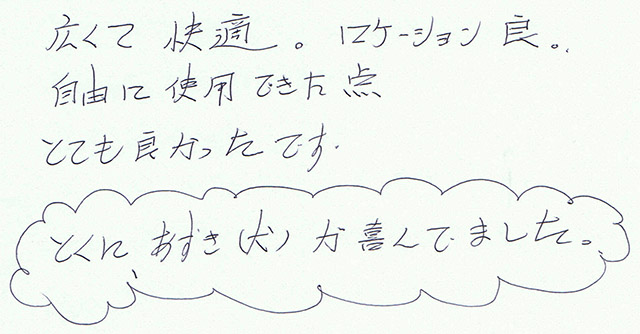 広くて 快適。 ロケーション 良。
自由に 使用 できた 点
とても 良かったです.
とくに あずき(犬) が 喜んでました。